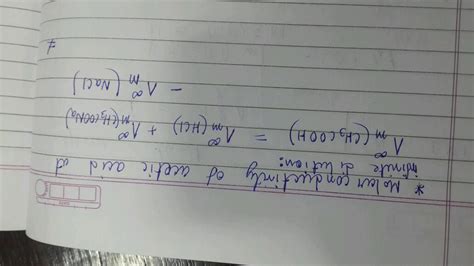 * Molar conductivity of acetic acid at
infinite dilution:
Λ∞m (CH3COOH) = Λ∞m (HCl) + Λ∞m (CH3COONa)
- Λ∞m (NaCl)